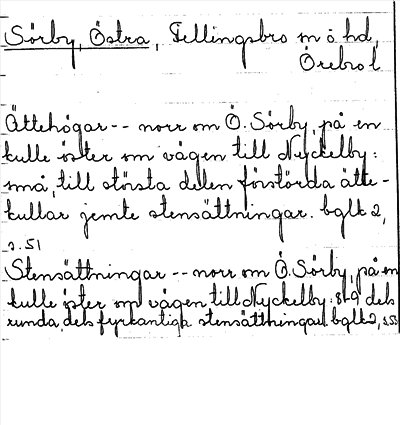 Sörby, Östra, Fellingsbro sn o hd,
Örebro l
Ättehögar -- norr om Ö. Sörby, på en
kulle öster om vägen till Nyckelby:
små, till största delen förstörda ätte-
kullar jemte stensättningar. bglk 2,
s. 51
Stensättningar -- norr om Ö. Sörby, på en
kulle öster om vägen till Nyckelby: 8-9 dels
runda, dels fyrkantiga stensättningar. bglk 2, s.53